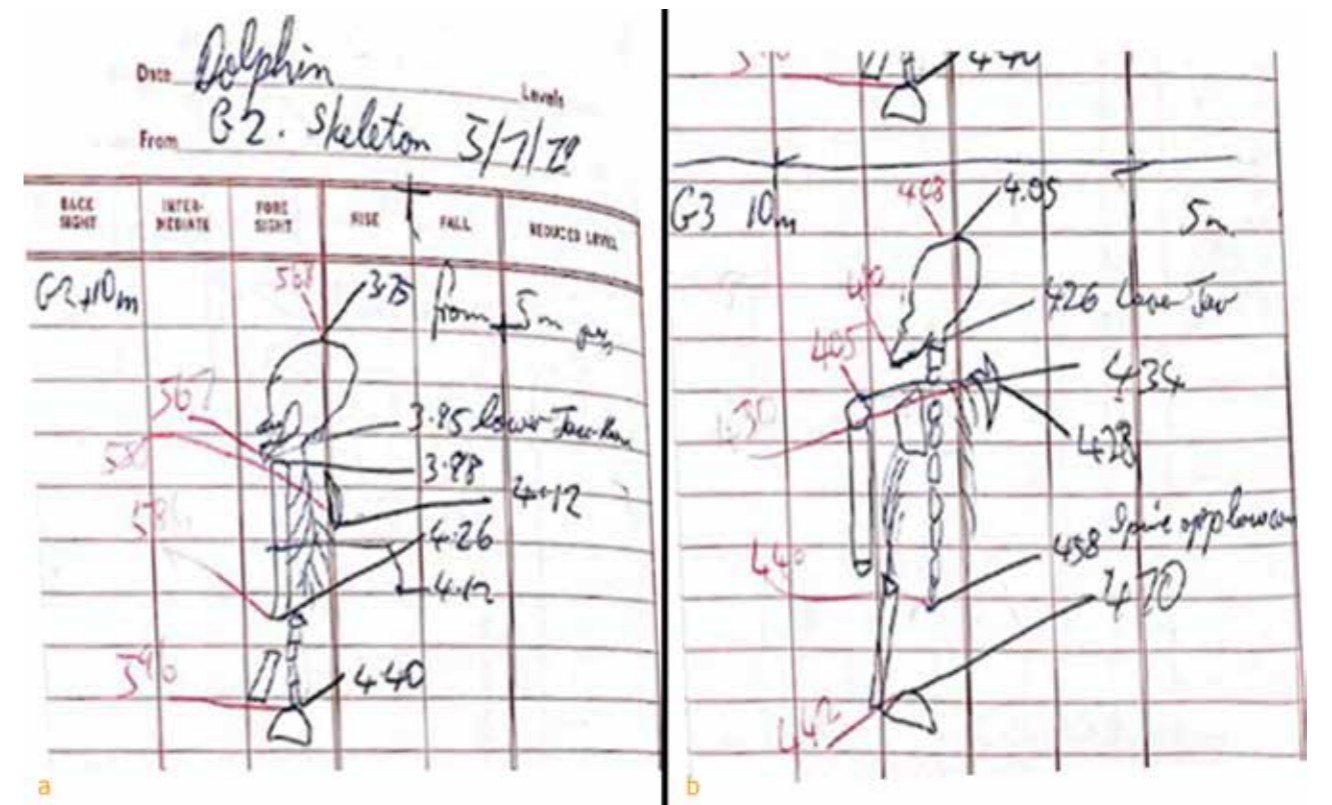 Date Dolphin
Levels
From G2. Skeleton 3/7/79
BACK SIGHT INTER- MEDIATE FORE SIGHT RISE FALL REDUCED LEVEL
G2 +10m 568 3.75 from 5m
567
3.85 lower Jaw
3.88
4.12
4.26
4.12
540
4.40
a
440
G3 10m 408 4.05 5m
410
426 Lower Jaw
405
434
430
428
Spine opp
440 458
470
442
b